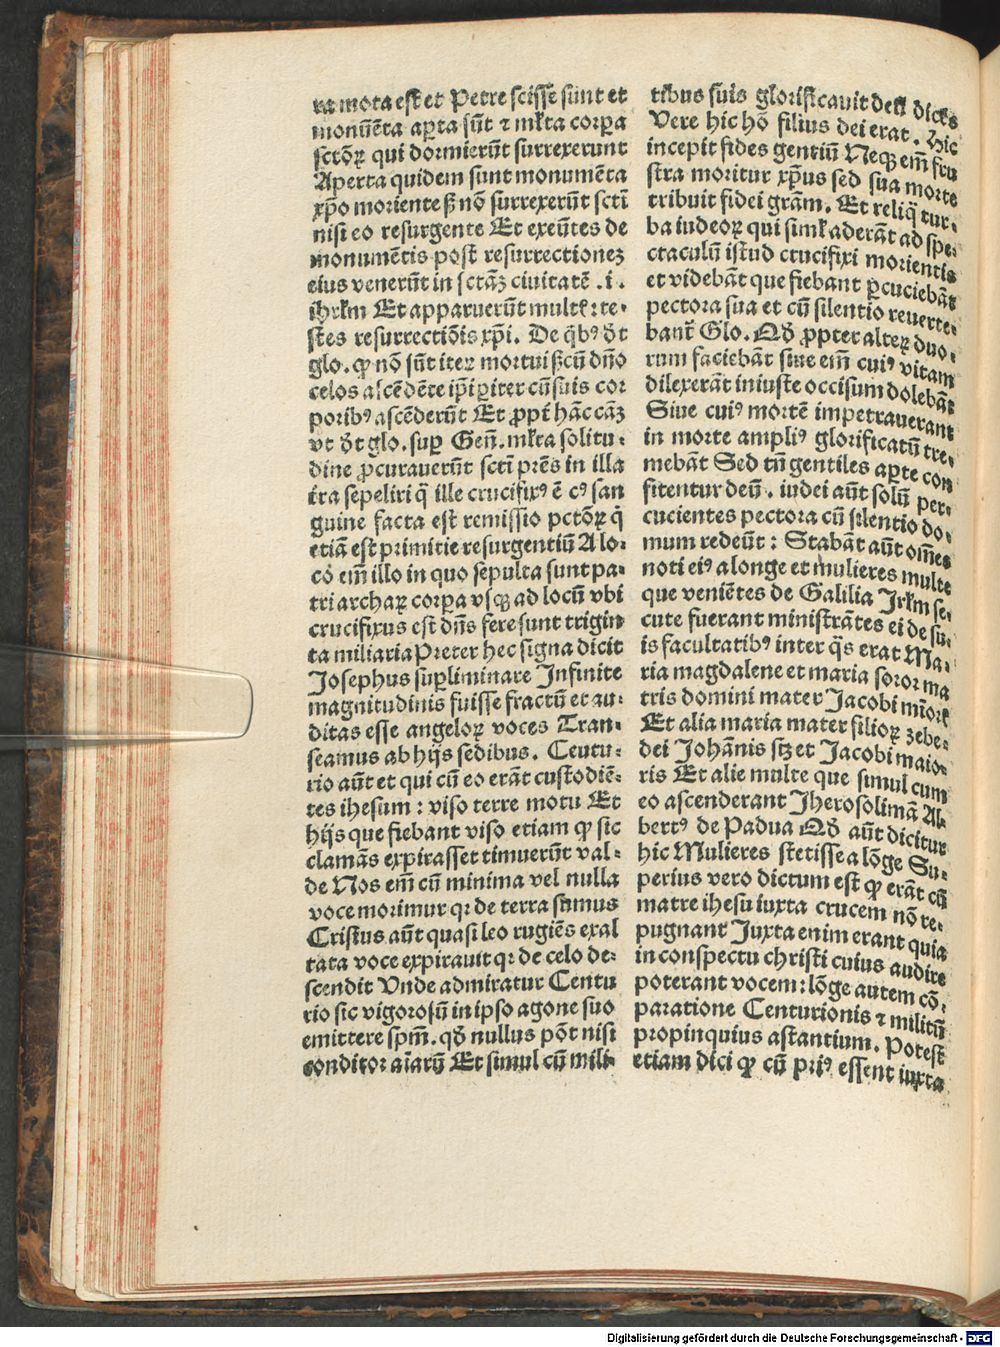 ra mota est et Petre scisse sunt et
monūēta aꝑta sūt ⁊ ml̓ta corꝑa
sctōꝝ qui dormierūt surrexerunt
Aperta quidem sunt monumēta
xp̄o moriente sꝫ nō surrexerūt scti
nisi eo resurgente Et exeūtes de
monumētis post resurrectionez
eius venerūt in sctāꝫ ciuitatē .i.
ihrl̓m Et apparuerūt multꝭ: te-
stes resurrectiōis xp̄i. De qͥbꝰ dt̄
glo. ꝙ nō sūt iteꝝ mortui sꝫ cū dn̄o
celos ascēdēte ip̄i ꝑiter cū suis cor
poribꝰ ascēderūt Et ꝓpt̄ hāc cāꝫ
vt dt̄ glo. suꝑ Gen̄. ml̓ta solitu-
dine ꝓcurauerūt sctī pr̄es in illa
t̄ra sepeliri q̄ ille crucifixꝰ ē cꝰ san
guine facta est remissio pctōꝝ q̄
etiā est primitie resurgentiū A lo-
co em̄ illo in quo sepulta sunt pa-
triarchaꝝ corꝑa vsqꝫ ad locū vbi
crucifixus est dn̄s fere sunt trigin
ta miliaria Preter hec signa dicit
Josephus suꝑliminare Infinite
magnitudinis fuisse fractū et au-
ditas esse angeloꝝ voces Tran-
seamus ab hijs sedibus. Centu-
rio aūt et qui cū eo erāt custodiē-
tes ihesum: viso terre motu Et
hijs que fiebant viso etiam ꝙ sic
clamās expirasset timuerūt val-
de Nos em̄ cū minima vel nulla
voce morimur qꝛ de terra sumus
Cristus aūt quasi leo rugiēs exal
tata voce expirauit qꝛ de celo de-
scendit Unde admiratur Centu
rio sic vigorosū in ipso agone suo
emittere spm̄. qd̄ nullus pōt nisi
conditor aīarū Et simul cū mili-
tibus suis glorificauit deū dicēs
Vere hic hō filius dei erat. Hic
incepit fides gentiū Neqꝫ em̄ fru
stra moritur xp̄us sed sua morte
tribuit fidei grām. Et reliq̄ tur-
ba iudeoꝝ qui siml̓ aderāt ad spe-
ctaculū istud crucifixi morientis
et videbāt que fiebant ꝑcuciebāt
pectora sua et cū silentio reuerte-
banť Glo. Qd̄ ꝓpter alteꝝ duo-
rum faciebāt siue em̄ cuiꝰ vitam
dilexerāt iniuste occisum dolebāt
Siue cuiꝰ mortē impetrauerant
in morte ampliꝰ glorificatū tre-
mebāt Sed tn̄ gentiles aꝑte con
fitentur deū. iudei aūt solū per-
cucientes pectora cū silentio do-
mum redeūt: Stabāt aūt om̄es
noti eiꝰ a longe et mulieres multe
que veniētes de Galilia Jrl̓m se-
cute fuerant ministrātes ei de su-
is facultatibꝰ inter q̄s erat Ma-
ria magdalene et maria soror ma
tris domini mater Jacobi mīorꝭ
Et alia maria mater filioꝝ zebe-
dei Johānis sꝫ et Jacobi maio-
ris Et alie multe que simul cum
eo ascenderant Jherosolimā Al-
bertꝰ de Padua Qd̄ aūt dicitur
hic Mulieres stetisse a lōge Su-
perius vero dictum est ꝙ erāt cū
matre ihesu iuxta crucem nō re-
pugnant Juxta enim erant quia
in conspectu christi cuius audire
poterant vocem: lōge autem cō-
paratione Centurionis ⁊ militū
propinquius astantium. Potest
etiam dici ꝙ cū priꝰ essent iuxta
Digitalisierung gefördert durch die Deutsche Forschungsgemeinschaft - DFG